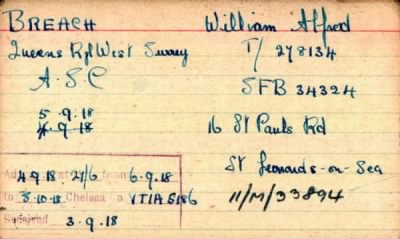 BREACH William Alfred
Queens Ryl West Surrey T/ 278134
A.S.C SFB 34324
5.9.18
4.9.18 16 St Pauls Rd
St Leonards-on-Sea
4.9.18. 27/6 from 6.9.18
to 5.10.18 Chelsea to VTIA6186 11/M/33894
Received 3.9.18